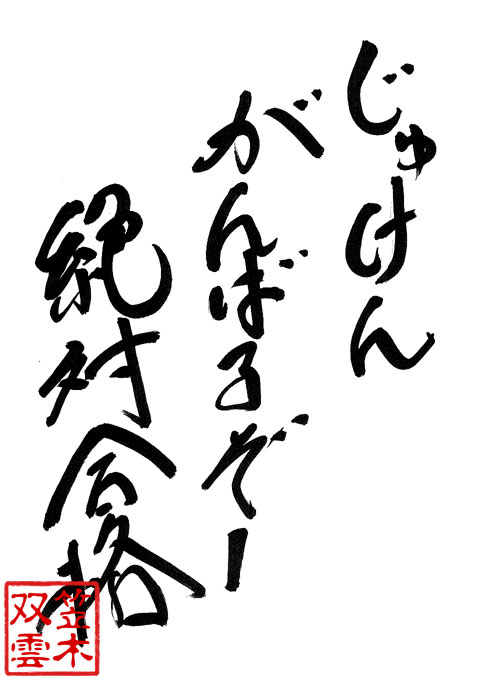 じゅけん
がんばるぞー
絶対合格
笠木
双雲